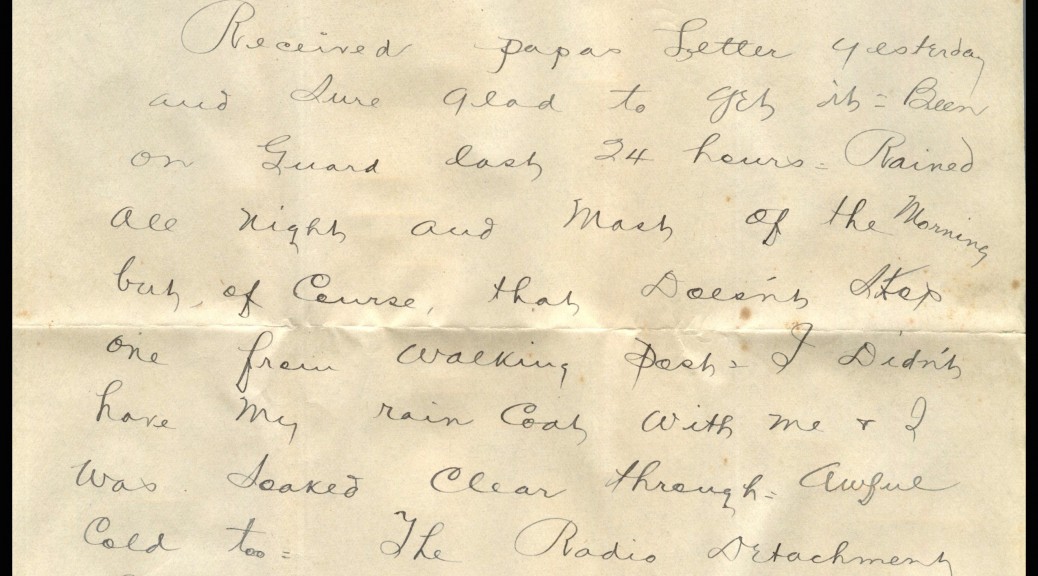 Received papas Letter yesterday
and Sure glad to get it = Been
on Guard last 24 hours = Rained
all night and Most of the Morning
but, of Course, that Doesn't Stop
one from walking Post = I Didn't
have My rain Coat with me & I
was soaked Clear through = Awful
Cold too = The Radio Detachment